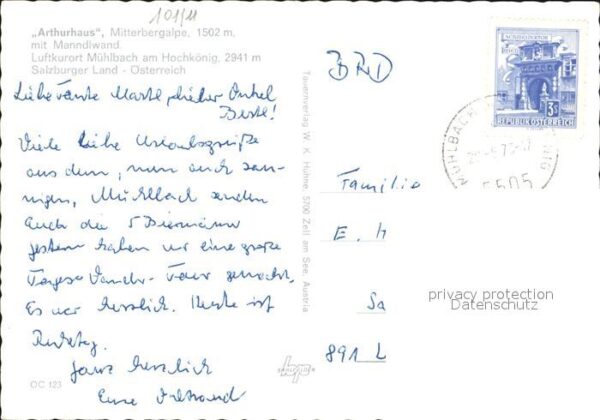 101/11
„Arthurhaus", Mitterbergalpe, 1502 m,
mit Manndlwand.
Luftkurort Mühlbach am Hochkönig, 2941 m
Salzburger Land - Österreich
Liebe Tante Martl, lieber Onkel
Bertl!
Viele liebe Urlaubsgrüße
aus dem, nun auch son-
nigen, Mühlbach senden
Euch die 5 Biermänner
gestern haben wir eine große
Tages Wander-Tour gemacht.
Es war herrlich. Heute ist
Ruhetag.
Ganz herzlich
Eure
OC 123
Tauernverlag W. K. Hühne, 5700 Zell am See, Austria
BRD
SCHWEIZERTOR
WIEN
3S
REPUBLIK ÖSTERREICH
MÜHLBACH
5505
Familie
E. h
Sa
891 L
privacy protection
Datenschutz